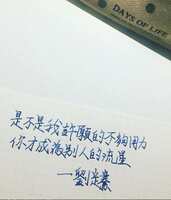 DAYS OF LIFE
是不是我許願的不夠用力
你才成為別人的流星
一劉